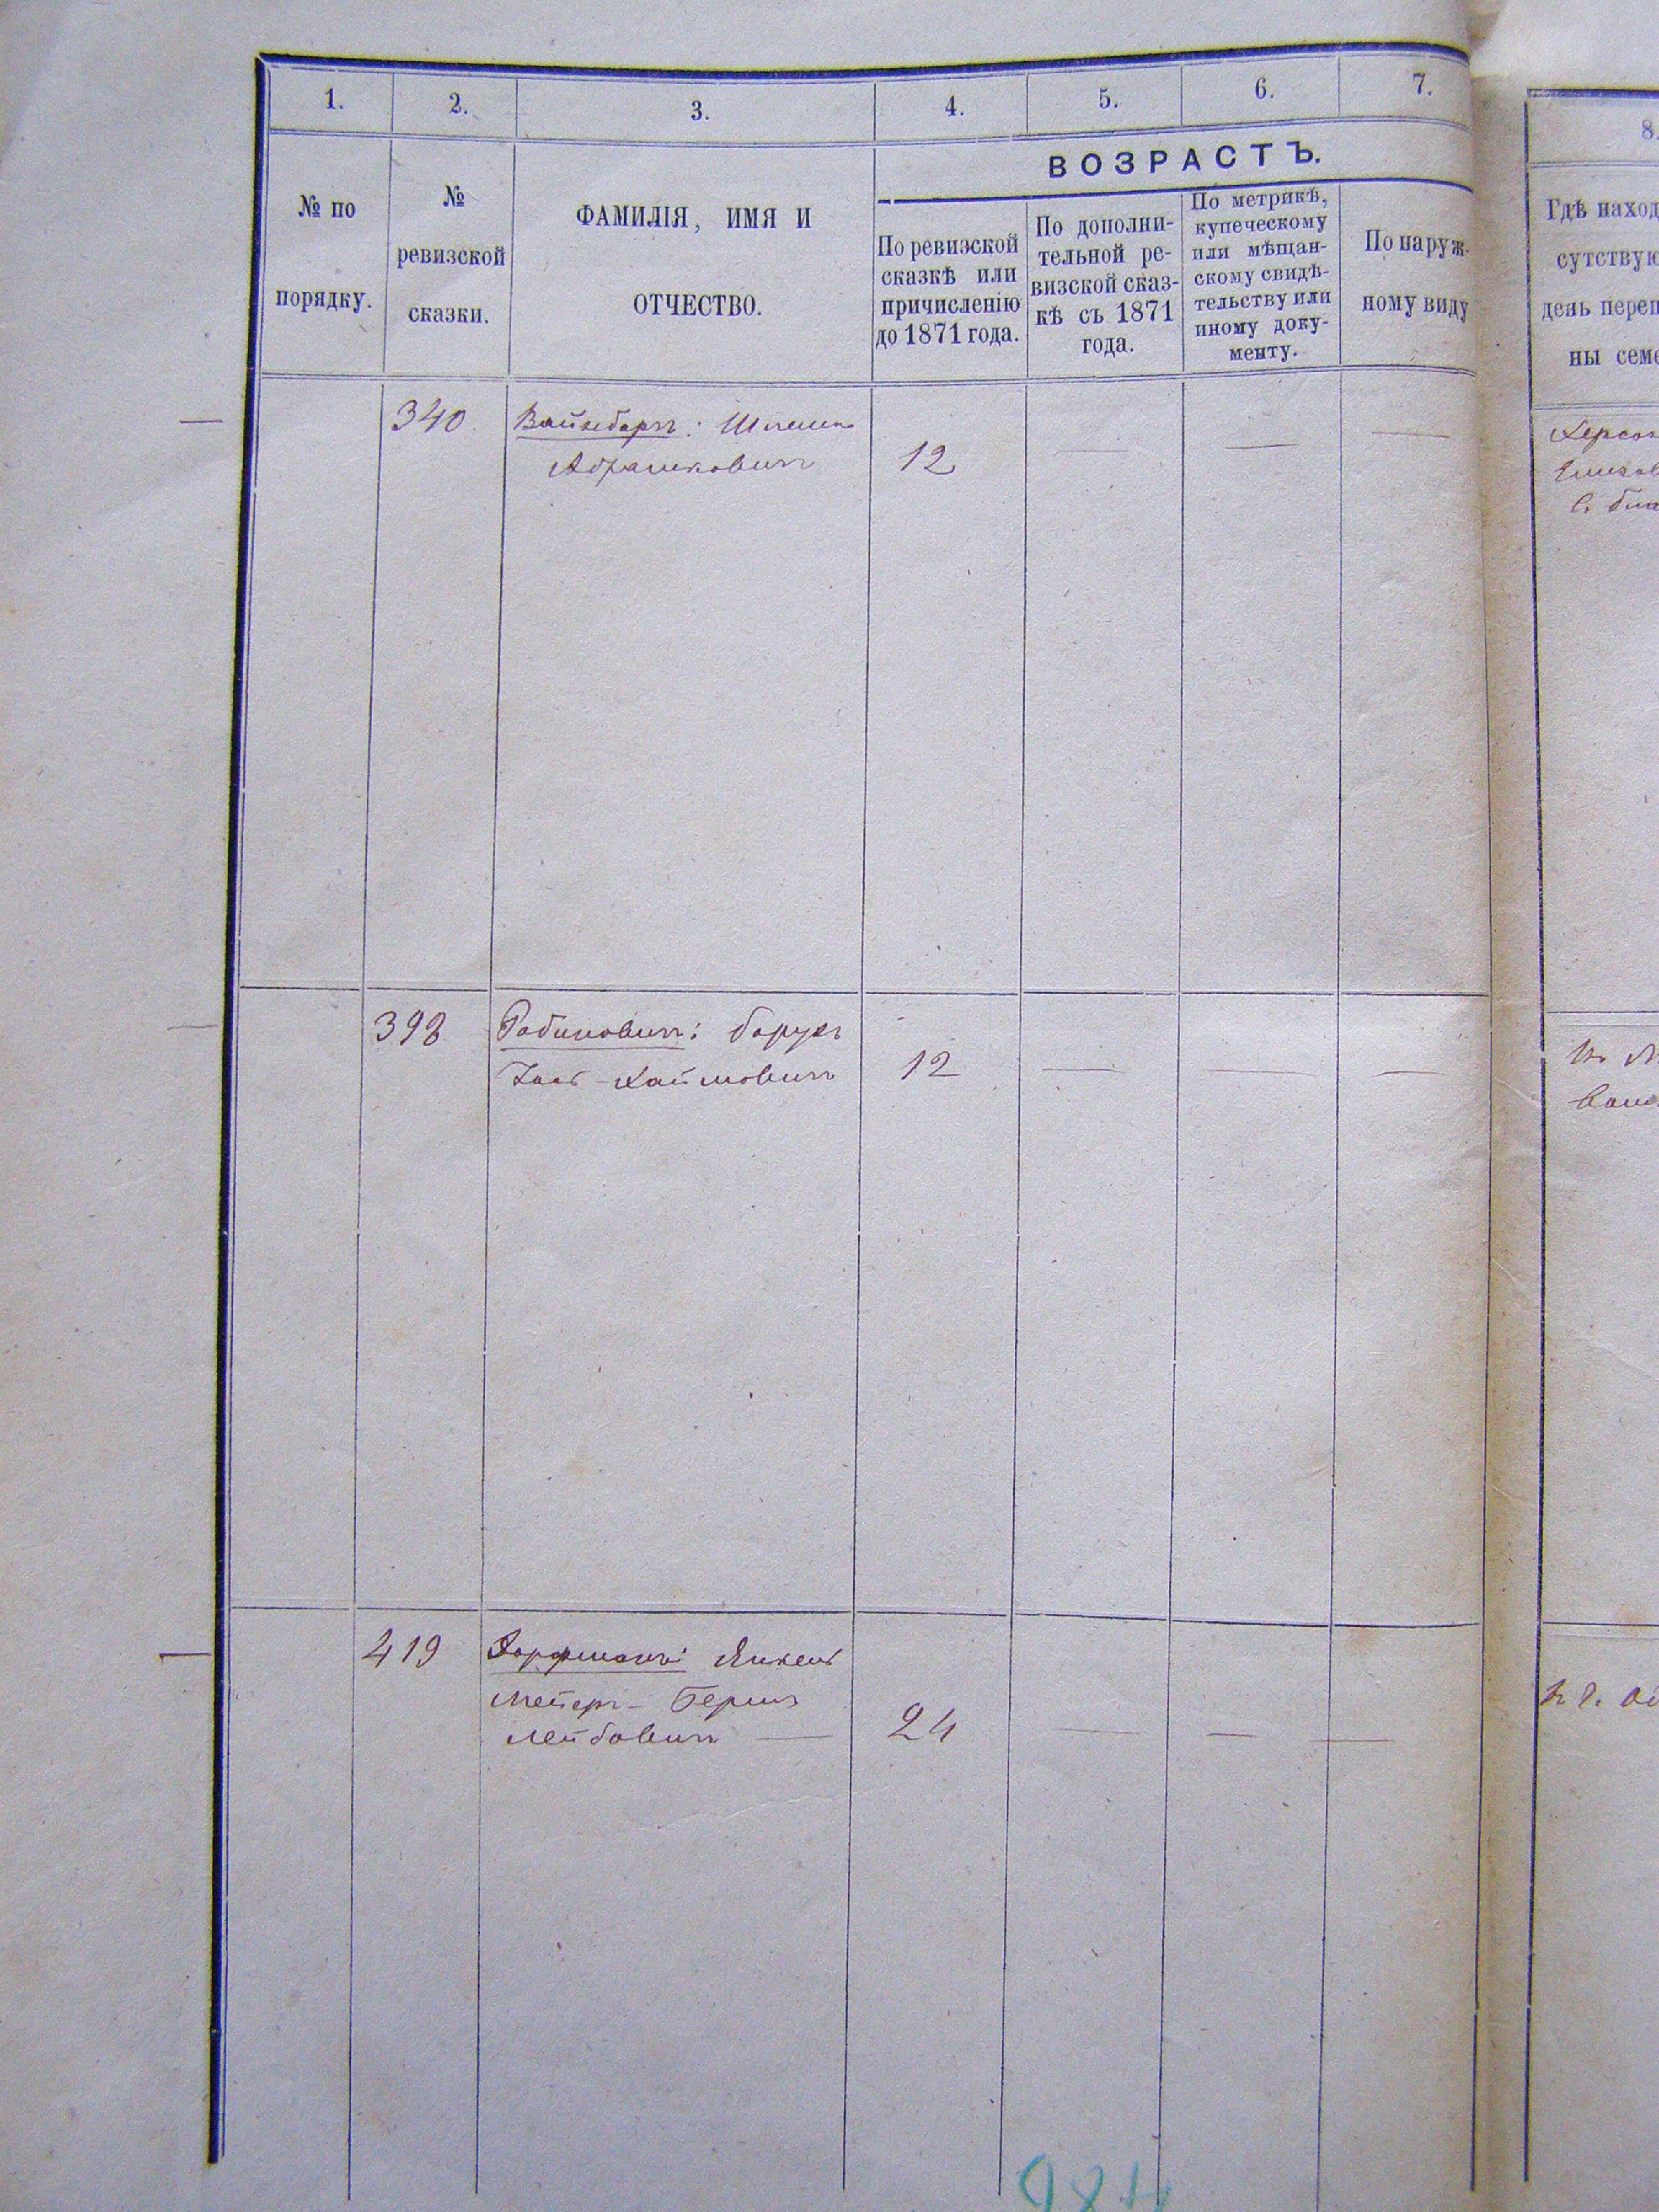 1. 2. 3. 4. 5. 6. 7.
8.
ВОЗРАСТЪ.
№ по
порядку.
№
ревизской
сказки.
ФАМИЛІЯ, ИМЯ И
ОТЧЕСТВО.
По ревизской
сказкѣ или
причисленію
до 1871 года.
По дополни-
тельной ре-
визской сказ-
кѣ съ 1871
года.
По метрикѣ,
купеческому
или мѣщан-
скому свидѣ-
тельству или
иному доку-
менту.
По наруж-
ному виду
Гдѣ наход
сутствую
день переп
ны семе
340 Вайнбергъ: Шлема
Абрамковичъ 12 — — —
Херсон
Елизав
398 Рабиновичъ: Борухъ
-Хаимовичъ 12 — — —
419 Янкель
Мейеръ- Беришъ
Лейбовичъ — 24 — — —